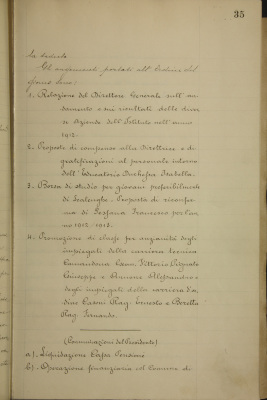 35
la seduta
Gli argomenti portati all'Ordine del
giorno sono:
1. Relazione del Direttore Generale sull'an-
damento e sui risultati delle diver-
se Aziende dell'Istituto nell'anno
1912.
2. Proposte di compenso alla Direttrice e di
gratificazioni al personale interno
dell'Educatorio Duchessa Isabella.
3. Borsa di studio per giovani preferibilmente
di Scalenghe. Proposta di riconfer-
ma di Francesco per l'an-
no 1912-1913.
4. Promozione di classe per anzianità degli
impiegati della carriera tecnica
Cav. Vittorio
Giuseppe e Alessandro e
degli impiegati della carriera d'or-
dine Rag. Ernesto e Beretta
Rag. Fernando.
(Comunicazioni del Presidente)
a). Liquidazione Consiva
b). Operazione finanziaria col Comune di